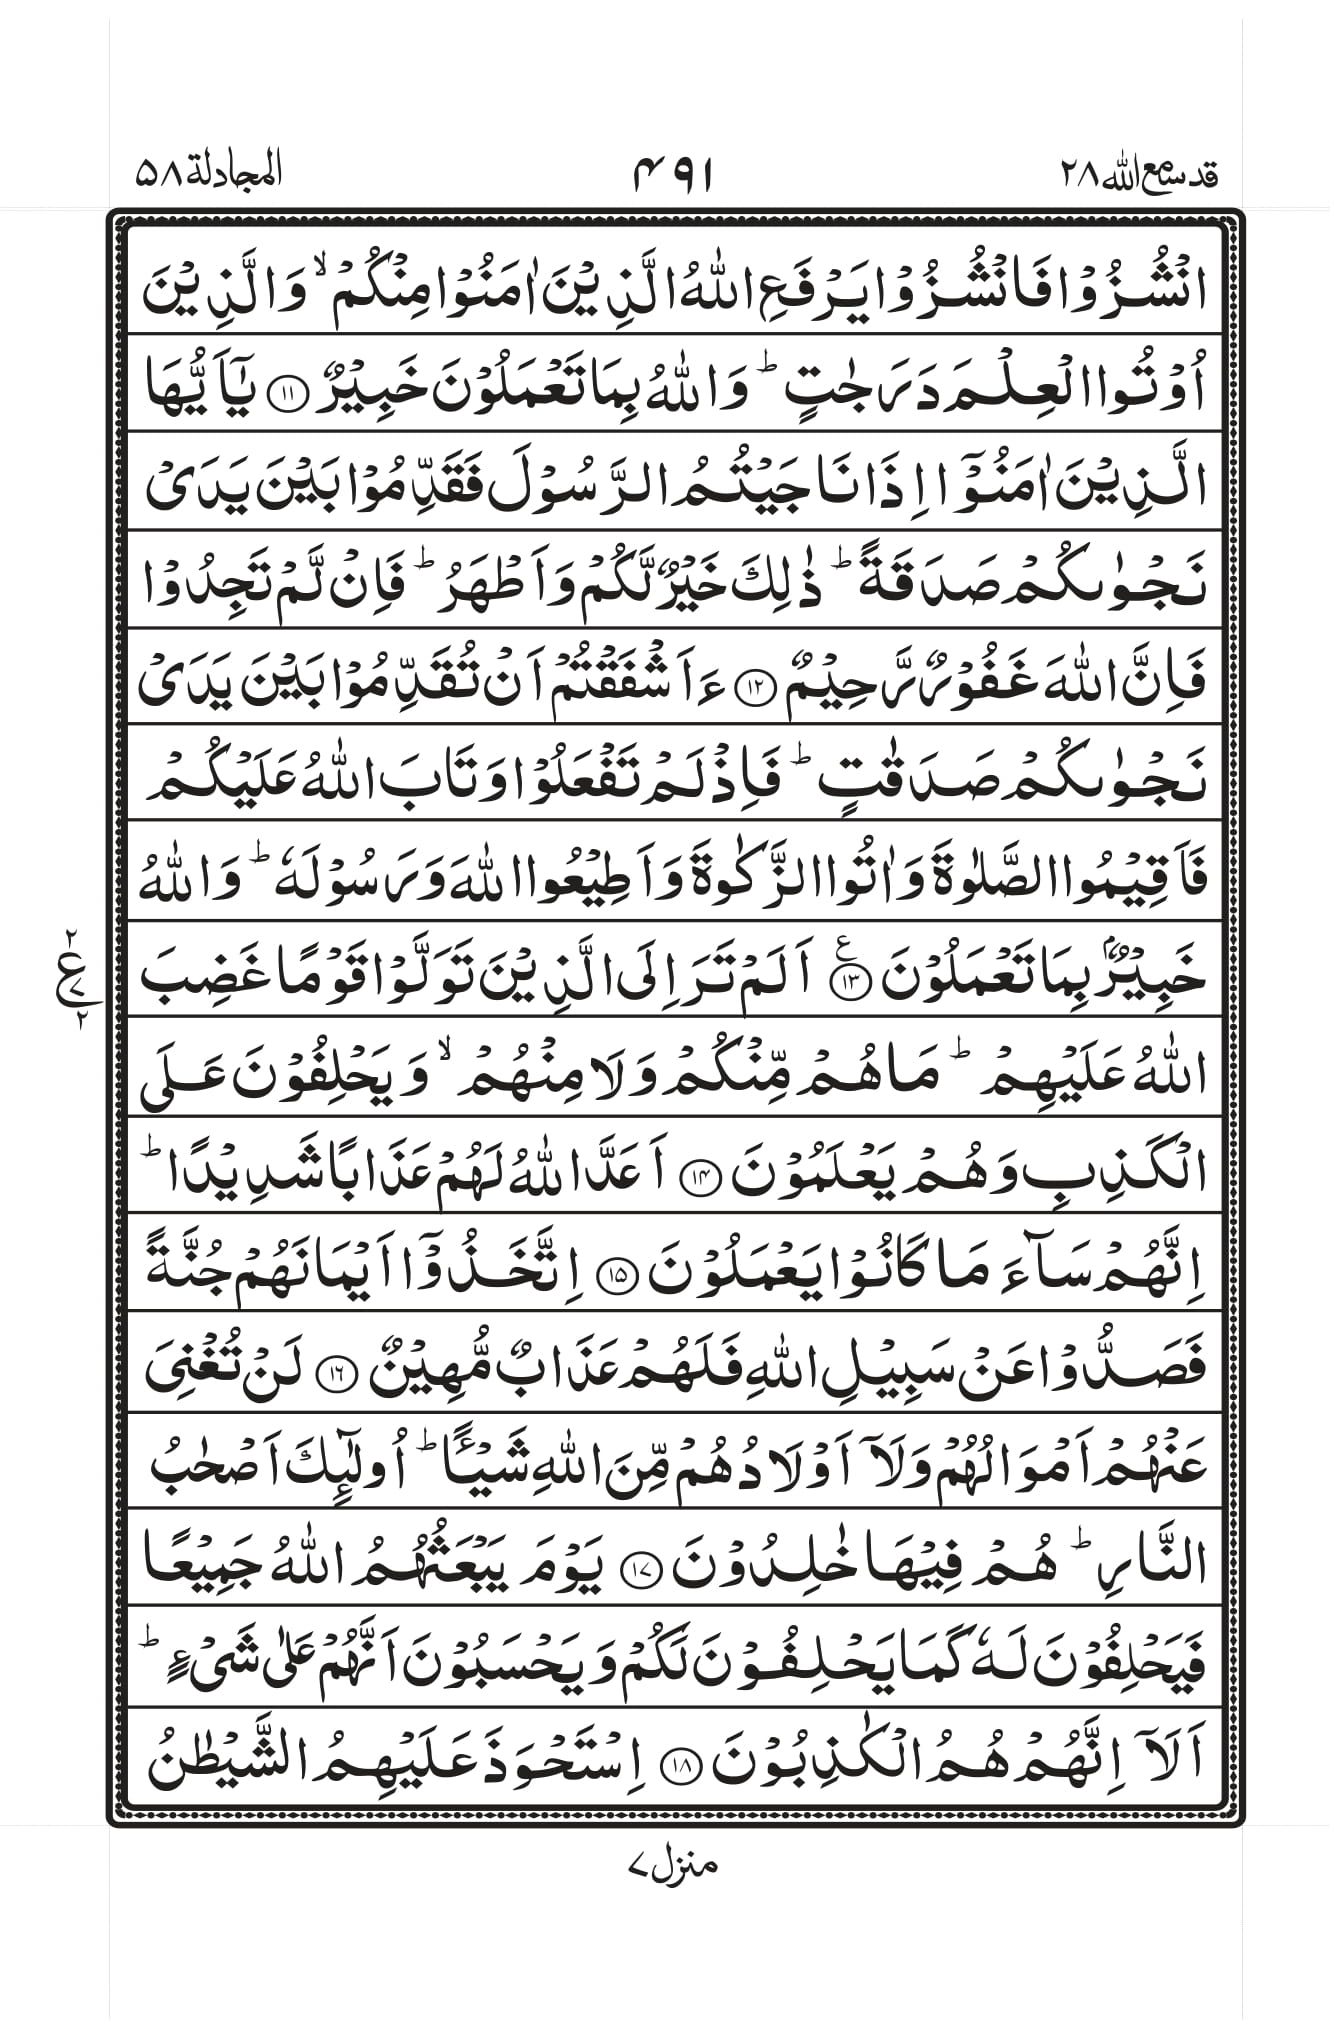 قد سمع الله ٢٨
٤٩١
المجادلة ٥٨
انْشُزُوْا فَانْشُزُوْا يَرْفَعِ اللّٰهُ الَّذِيْنَ اٰمَنُوْا مِنْكُمْ ۙ وَالَّذِيْنَ
اُوْتُوا الْعِلْمَ دَرَجٰتٍ ؕ وَاللّٰهُ بِمَا تَعْمَلُوْنَ خَبِيْرٌ ﴿۱۱﴾ يٰۤاَيُّهَا
الَّذِيْنَ اٰمَنُوْۤا اِذَا نَاجَيْتُمُ الرَّسُوْلَ فَقَدِّمُوْا بَيْنَ يَدَىْ
نَجْوٰىكُمْ صَدَقَةً ؕ ذٰلِكَ خَيْرٌ لَّكُمْ وَاَطْهَرُ ؕ فَاِنْ لَّمْ تَجِدُوْا
فَاِنَّ اللّٰهَ غَفُوْرٌ رَّحِيْمٌ ﴿۱۲﴾ ءَاَشْفَقْتُمْ اَنْ تُقَدِّمُوْا بَيْنَ يَدَىْ
نَجْوٰىكُمْ صَدَقٰتٍ ؕ فَاِذْ لَمْ تَفْعَلُوْا وَتَابَ اللّٰهُ عَلَيْكُمْ
فَاَقِيْمُوا الصَّلٰوةَ وَاٰتُوا الزَّكٰوةَ وَاَطِيْعُوا اللّٰهَ وَرَسُوْلَهٗ ؕ وَاللّٰهُ
خَبِيْرٌۢ بِمَا تَعْمَلُوْنَ ﴿۱۳﴾ ع اَلَمْ تَرَ اِلَى الَّذِيْنَ تَوَلَّوْا قَوْمًا غَضِبَ
٢ ع ٧ ٢
اللّٰهُ عَلَيْهِمْ ؕ مَا هُمْ مِّنْكُمْ وَلَا مِنْهُمْ ۙ وَيَحْلِفُوْنَ عَلَى
الْكَذِبِ وَهُمْ يَعْلَمُوْنَ ﴿۱۴﴾ اَعَدَّ اللّٰهُ لَهُمْ عَذَابًا شَدِيْدًا ؕ
اِنَّهُمْ سَآءَ مَا كَانُوْا يَعْمَلُوْنَ ﴿۱۵﴾ اِتَّخَذُوْۤا اَيْمَانَهُمْ جُنَّةً
فَصَدُّوْا عَنْ سَبِيْلِ اللّٰهِ فَلَهُمْ عَذَابٌ مُّهِيْنٌ ﴿۱۶﴾ لَنْ تُغْنِىَ
عَنْهُمْ اَمْوَالُهُمْ وَلَاۤ اَوْلَادُهُمْ مِّنَ اللّٰهِ شَيْـًٔا ؕ اُولٰٓئِكَ اَصْحٰبُ
النَّارِ ؕ هُمْ فِيْهَا خٰلِدُوْنَ ﴿۱۷﴾ يَوْمَ يَبْعَثُهُمُ اللّٰهُ جَمِيْعًا
فَيَحْلِفُوْنَ لَهٗ كَمَا يَحْلِفُوْنَ لَكُمْ وَيَحْسَبُوْنَ اَنَّهُمْ عَلٰى شَىْءٍ ؕ
اَلَاۤ اِنَّهُمْ هُمُ الْكٰذِبُوْنَ ﴿۱۸﴾ اِسْتَحْوَذَ عَلَيْهِمُ الشَّيْطٰنُ
منزل ٧